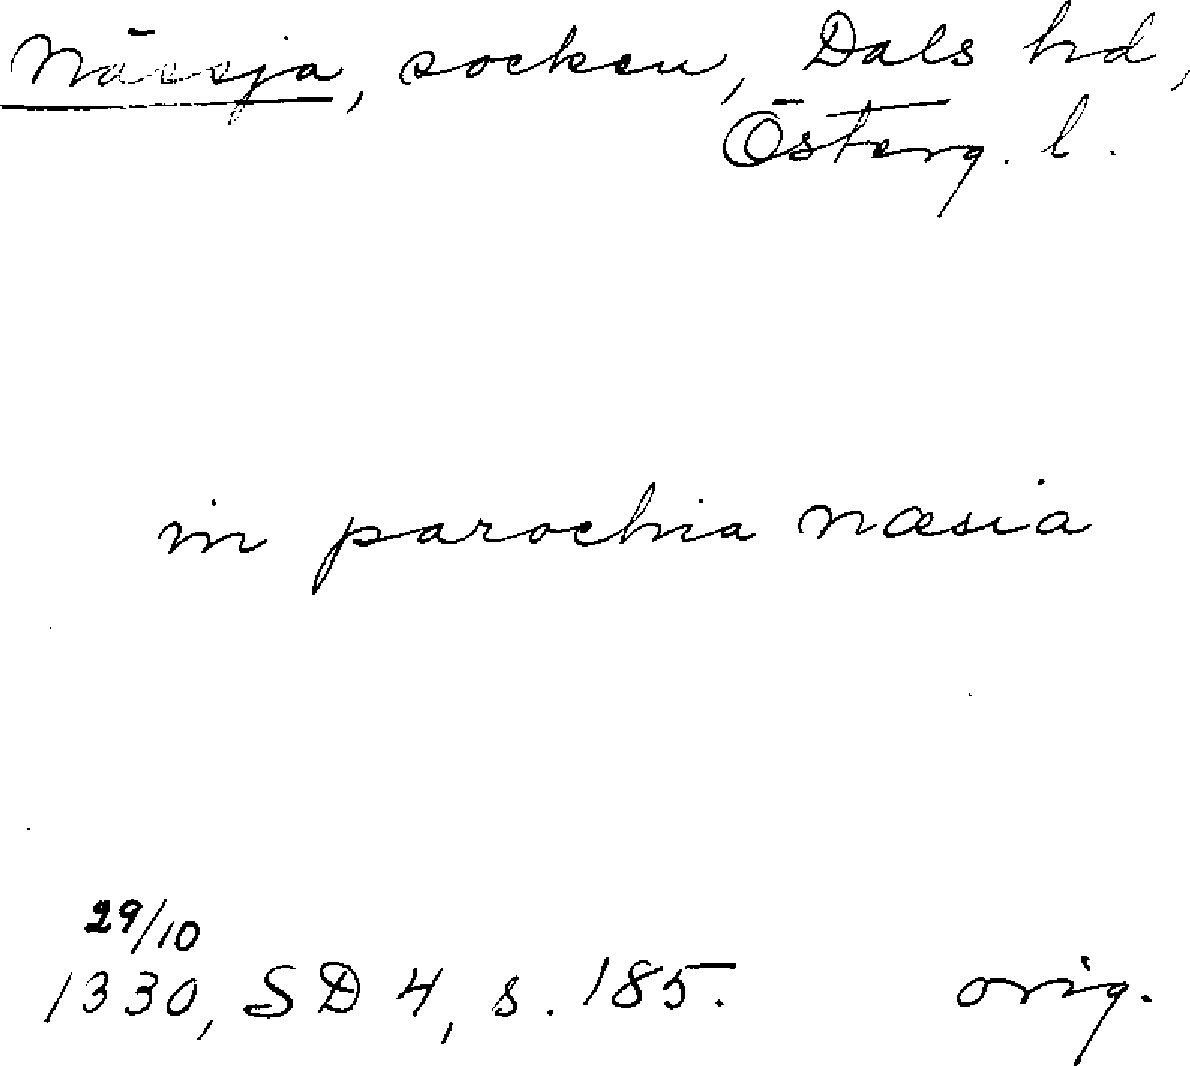 Nässja, socken, Dals hd,
Österg. l.
in parochia næsia
29/10
1330, SD 4, s. 185.
orig.